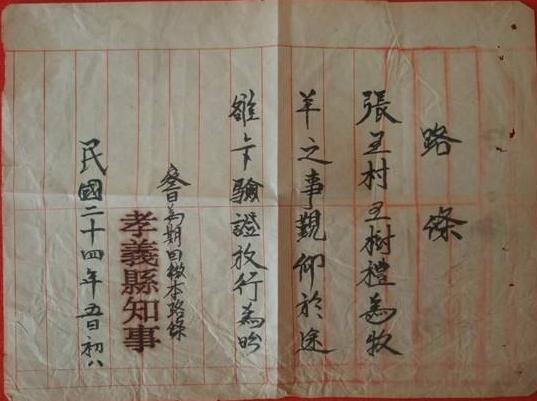 路條
張王村王樹禮為牧
羊之事觀仰於途
驗證放行為盼
為期回繳本路條
孝義縣知事
民國二十四年五日初八